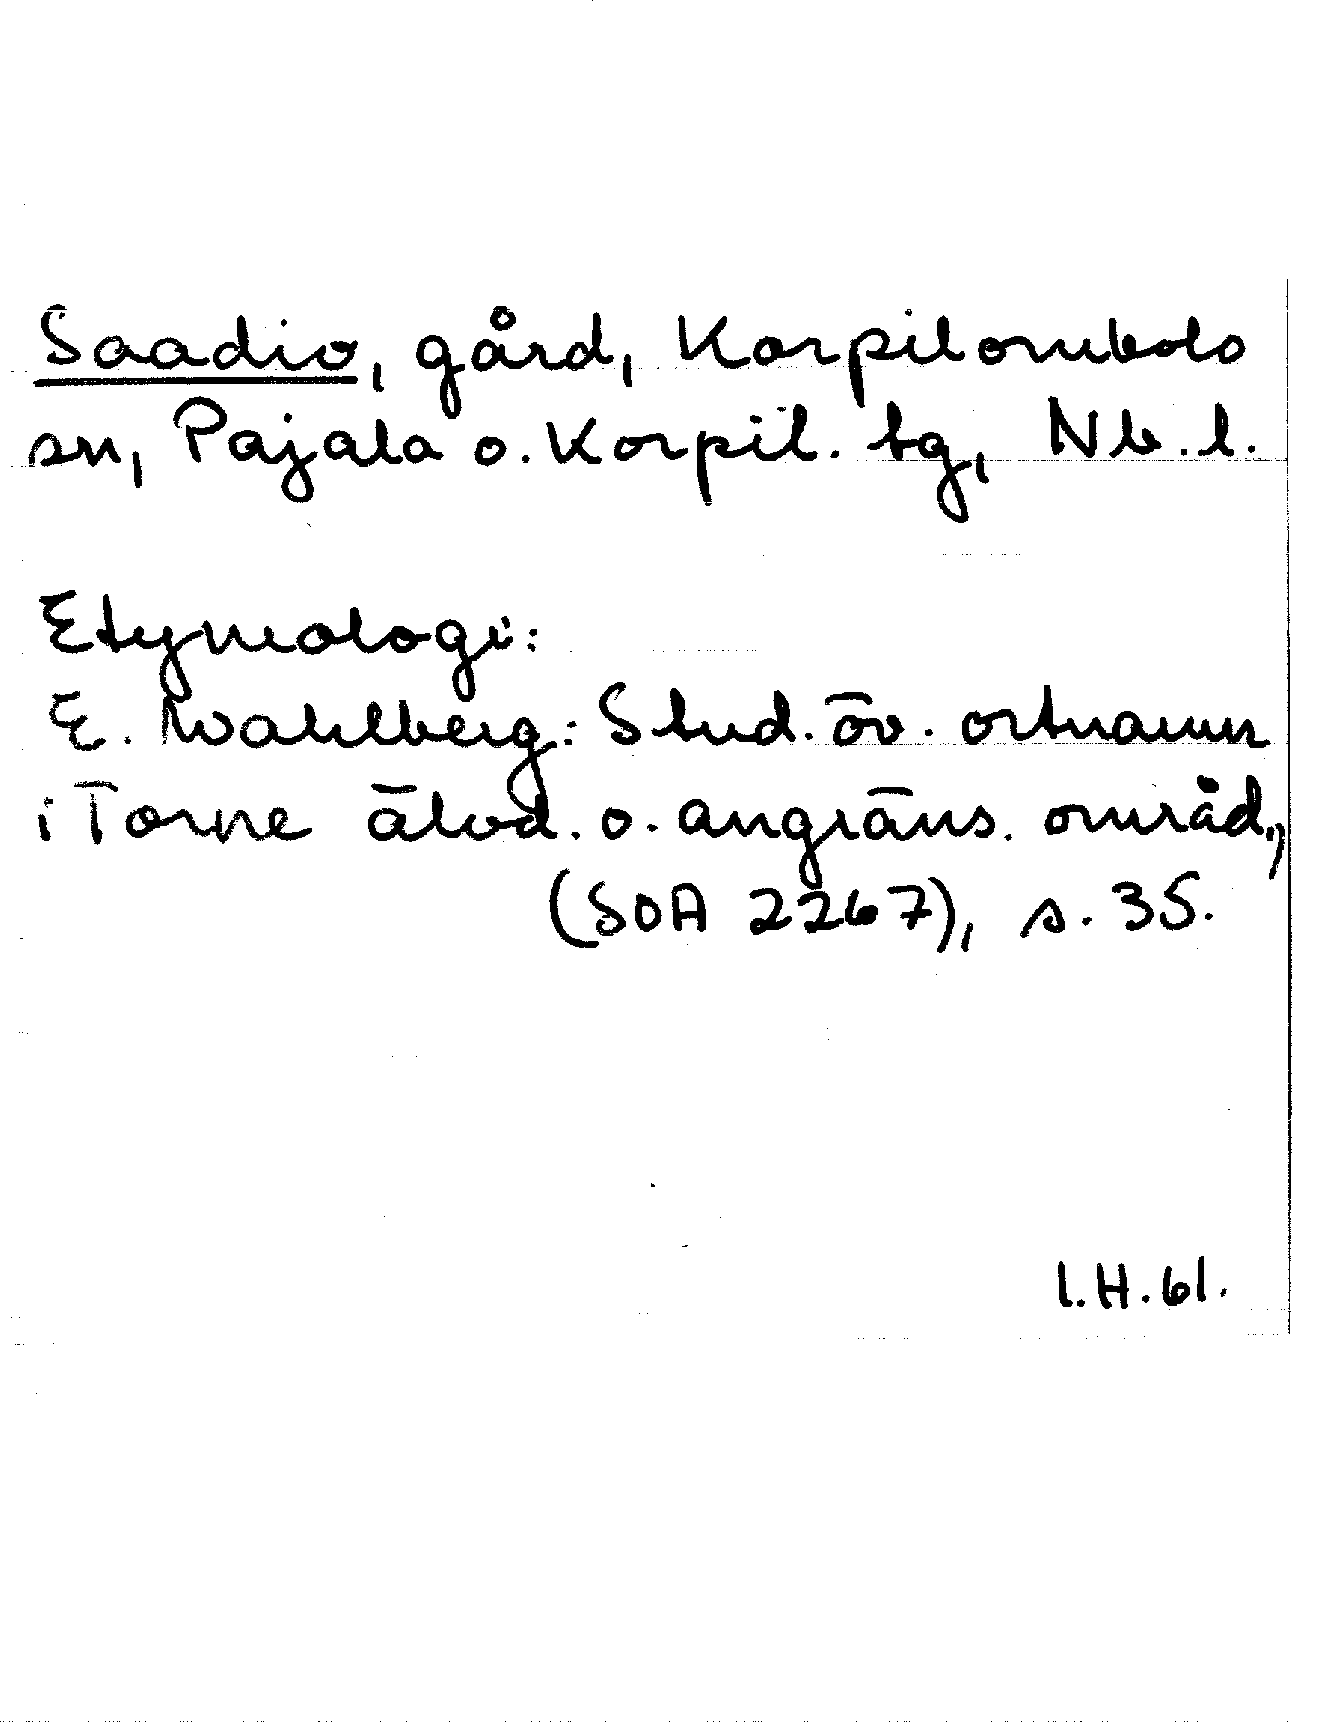 Saadio, gård, Korpilombolo
sn, Pajala o. Korpil. tg, Nb. l.
Etymologi:
E. Wahlberg: Stud. öv. ortnamn
i Torne älvd. o. angräns. områd.,
(SOA 2267), s. 35.
I.H. 61.